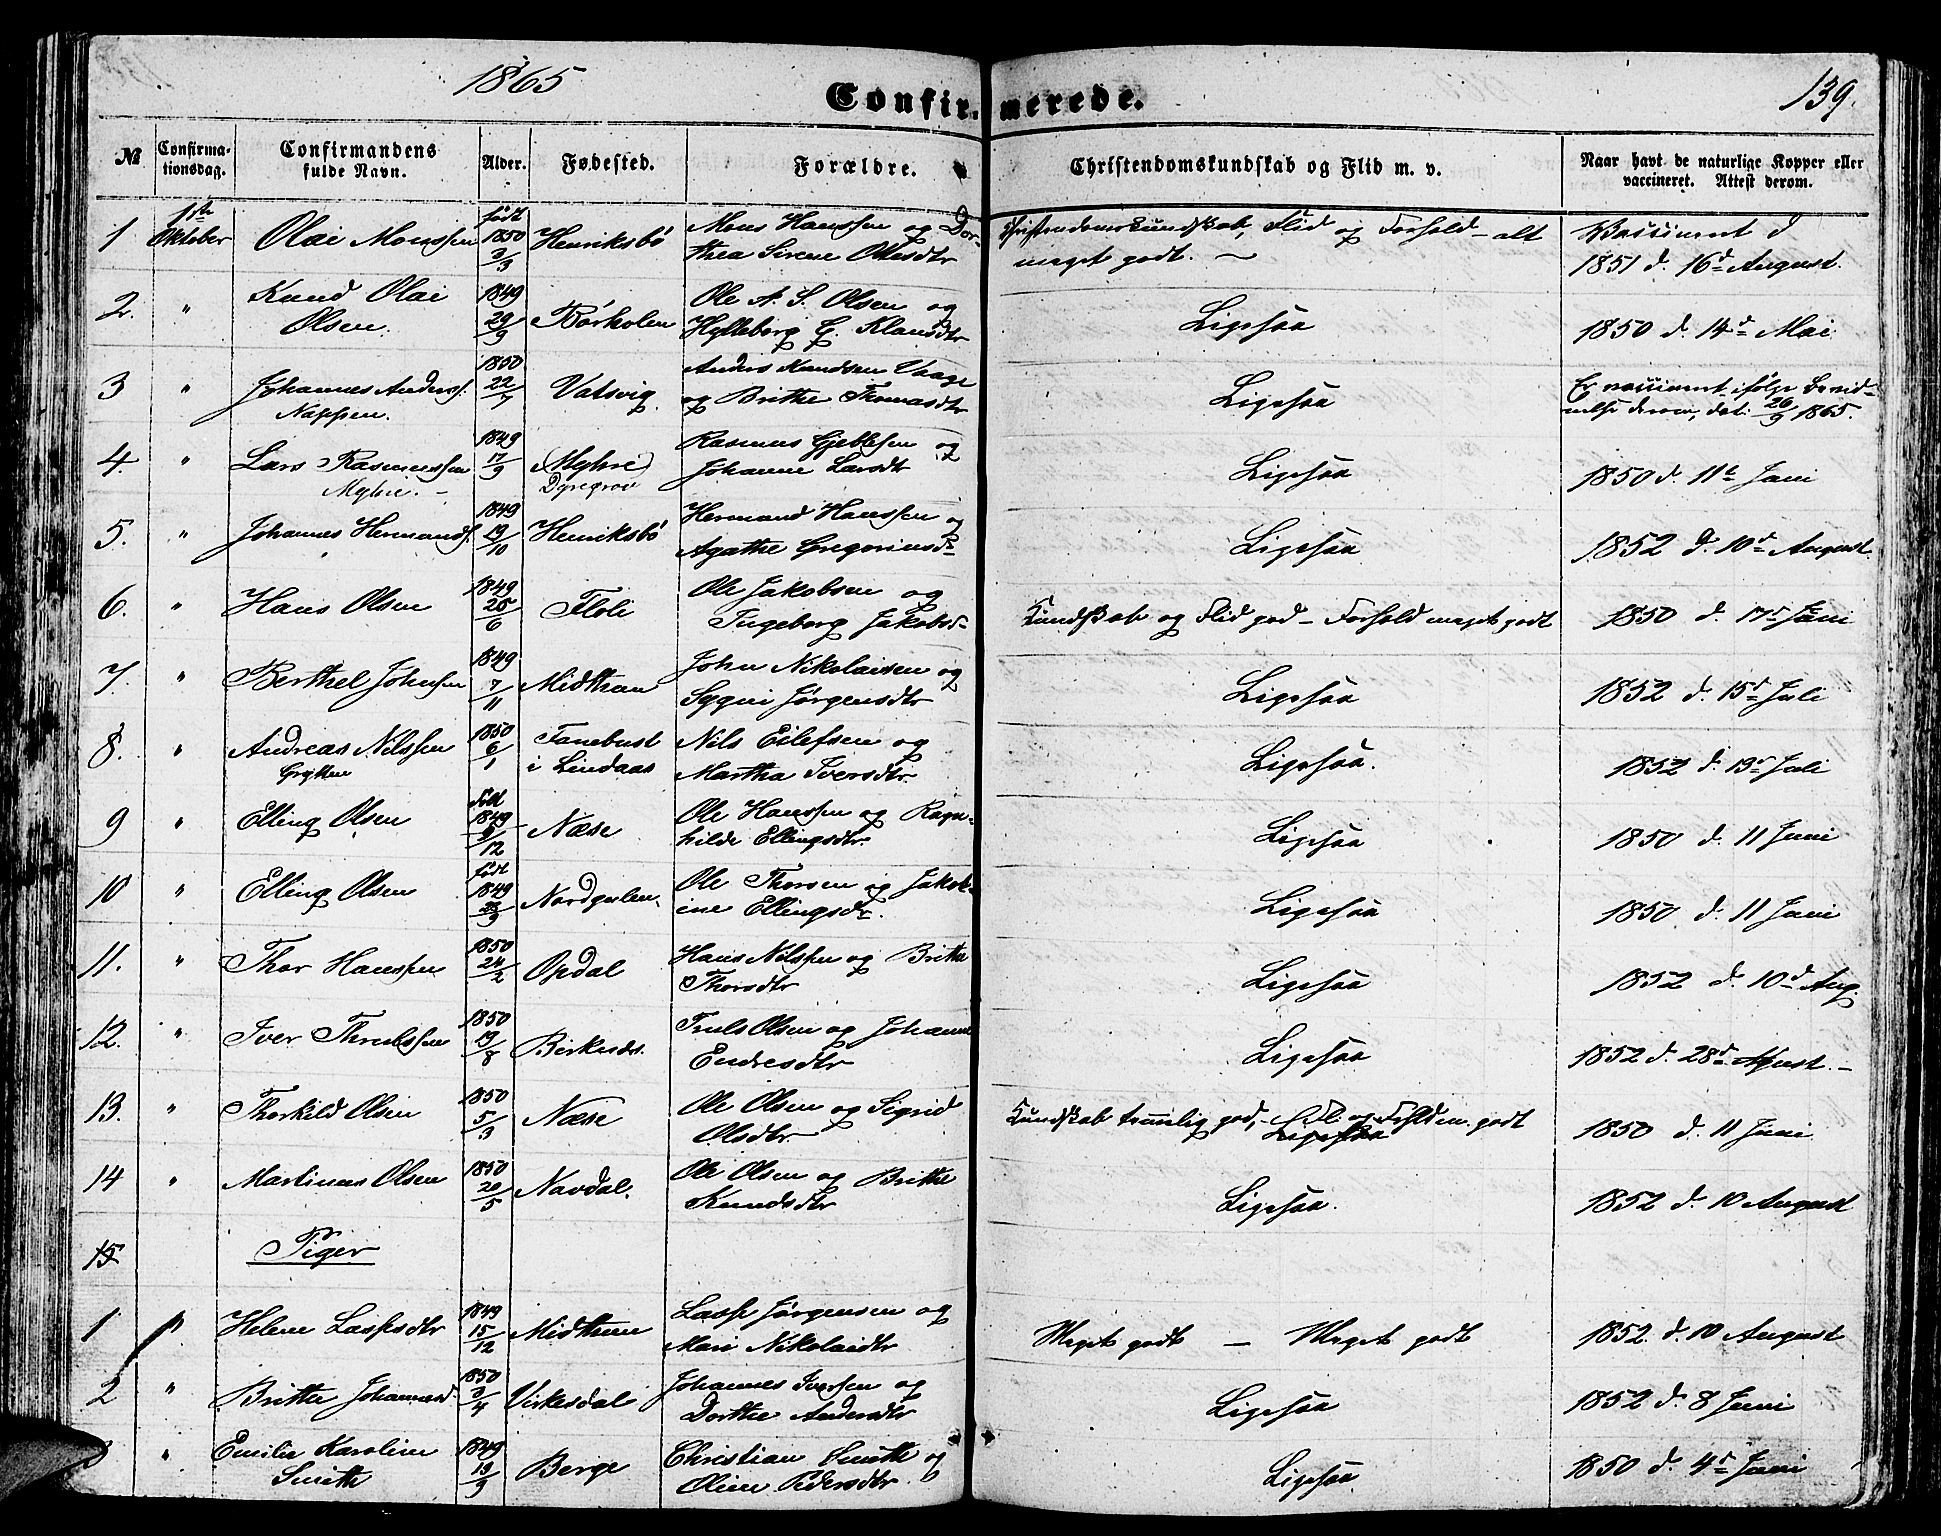 1865
139.
Confirmerede.
№ Confirmationsdag. Confirmandens fulde Navn. Alder. Fødested. Forældre. Christendomskundskab og Flid m. v. Naar havt de naturlige Kopper eller vaccineret. Attest derom.
1 1ste Oktober Olai Monssen født 1850 3/3 Henriksbø Mons Hanssen og Dor-
thea Sirene Olesdtr Christendomskundskab, Flid og Forhold – alt
meget godt. Vaccineret d
1851 d. 16d August.
2. " Knud Olai
Olsen. 1849 29/9 Børholen Ole A. S. Olsen og
Hylleborg G. Klausdtr Ligesaa 1850 d. 14d Mai
3 " Johannes Anders.
Nappen. 1850 22/7 Vatsvig. Anders Knudsen Vaage
og Brithe Thomasdtr Ligesaa Er vaccineret ifølge Bevid-
nelse derom, dat. 26/9 1865.
4 " Lars Rasmussen
Myhre. 1849 17/9 Myhre
Dyregrov Rasmus Gjeblesen og
Johanne Larsdtr Ligesaa 1850 d. 11te Juni
5. " Johannes Hermands. 1849 19/10 Henriksbø Hermand Hanssen og
Agathe Gregoriusdr Ligesaa 1852 d. 10d August.
6. " Hans Olsen 1849 25/6 Floli Ole Jakobsen og
Ingeborg Jakobsd Kundskab og Flid god – Forhold meget godt 1850 d. 17d Juni
7. " Berthel Johnsen 1849 7/11 Midthun John Nikolaisen og
Sygni Jørgensdtr Ligesaa 1852 d. 15d Juli
8. " Andreas Nilssen
Grytten 1850 6/1 Fanebust
i Lindaas Nils Eilefsen og
Martha Iversdtr. Ligesaa. 1852 d. 13d Juli
9 " Elling Olsen født 1849 9/12 Næse Ole Hanssen og Ragn-
hilde Ellingsdtr. Ligesaa 1850 d. 11 Juni
10 " Elling Olsen født 1849 23/9 Nordgulen. Ole Thorsen og Jakob-
ine Ellingsdr. Ligesaa 1850 d. 11 Juni
11. " Thor Hanssen 1850 24/2 Opdal Hans Nilssen og Brithe
Thorsdtr Ligesaa 1852 d. 10d Aug.
12. " Iver Thrulssen 1850 19/8 Birknes. Truls Olsen og Johanne
Endresdtr Ligesaa 1852 d. 28d August. –
13. " Thorkild Olsen 1850 5/3 Næse Ole Olsen og Sigrid
Olsdtr Kundskab temmelig god, Fl. og Forhld m. godt
Ligesaa 1850 d. 11 Juni
14 " Martinus Olsen 1850 20/5 Navdal. Ole Olsen og Brithe
Knudsdtr Ligesaa. 1852 d. 10 August
15 Piger
1 " Helene Lassesdtr 1849 15/12 Midthun Lasse Jørgensen og
Mari Nikolaidtr Meget godt – Meget godt 1852. d. 10 August
2 " Brithe Johannesd. 1850 3/4 Virkesdal Johannes Iversen og
Dorthe Andersdtr Ligesaa 1852 d. 8 Juni
3 " Emilie Karoline
Smith 1849 13/9 Berge Christian Smith og
Oline Pedersdtr Ligesaa 1850 d. 4d Juni